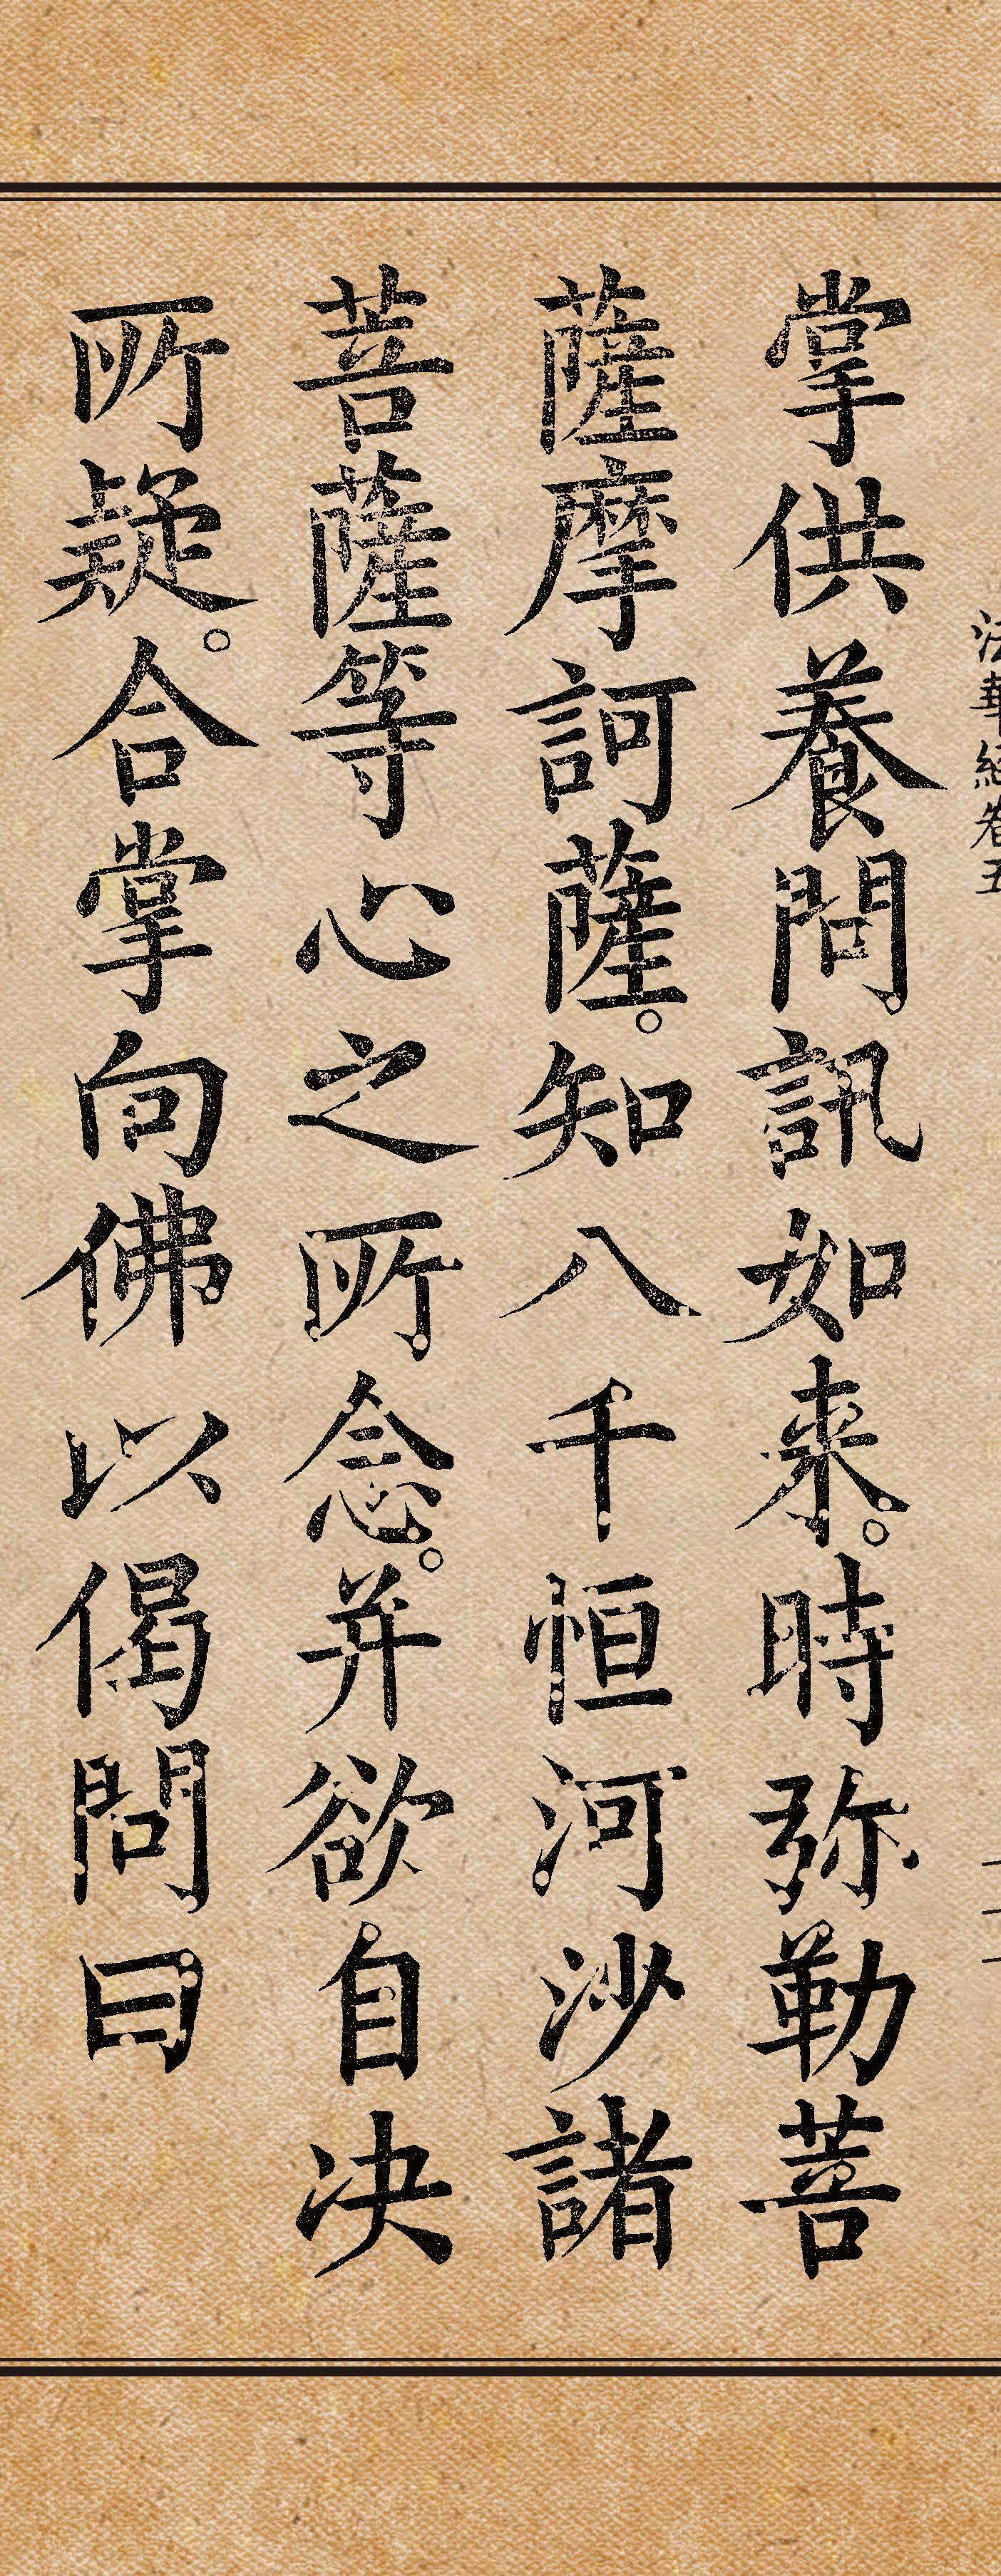 法華經卷五
掌供養問訊如來。時弥勒菩
薩摩訶薩。知八千恒河沙諸
菩薩等心之所念。并欲自決
所疑。合掌向佛以偈問曰